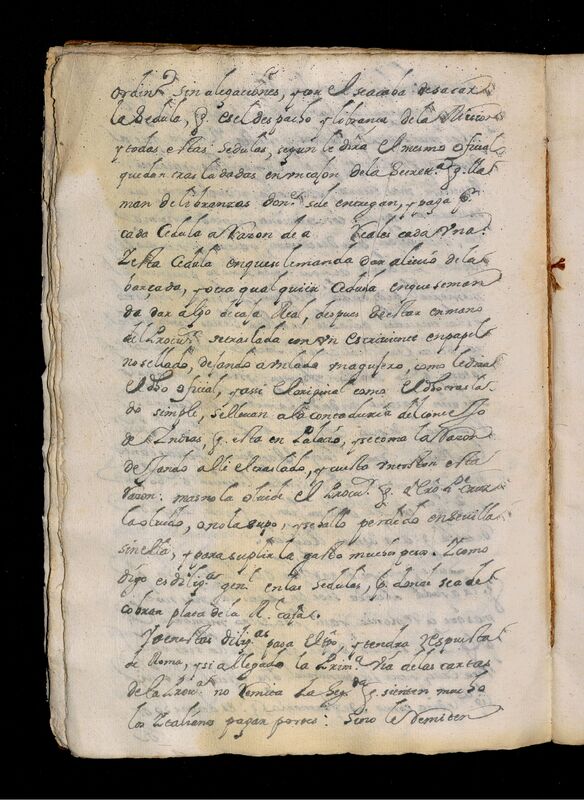 ordin.º sin alegaciones, y con el se acaba de sacar
la Sedula, q̃ es el despacho y librança de la Mission
y todas estas sedulas, segun le dirá el mesmo oficial
quedan trasladadas en un cajon de la Secret.ª q̃ lla
man de libranzas don.e se le entregan, y paga p.r
cada Cedula a razon de a Reales cada una.
Esta Cedula en que se manda dar al
barcada, y otra qualquier Cedula en que se man
da dar algo de casa Real, despues de estar en mano
del Procu.or se traslada con un escriviente en papel
no sellado, dejando a un lado magusero, como le dira
el dho oficial, y assi el original como el dho trasla
do simple, se llevan a la contaduria del Consejo
de Indias, q̃ esta en Palacio, y se toma la Razon
dejando alli el traslado, y cuesta un toston esta
razon: mas no la olvide el Procu.or q̃ el P.e Cruz
la olvido, o no la supo, y se hallo perdido en Sevilla
sin ella, y para suplirla gasto mucho peso. Y como
digo es dilig.a gen.l en las sedulas, por donde sea de
cobran plata de la R.l caja.
Y en estas dilig.as pasa el tpō, y tendra respuesta
de Roma, y si a llegado la prim.ª via de las cartas
de la Prov.a no remita la seg.da q̃ sienten mucho
los Italianos pagar portes: sino le remiten